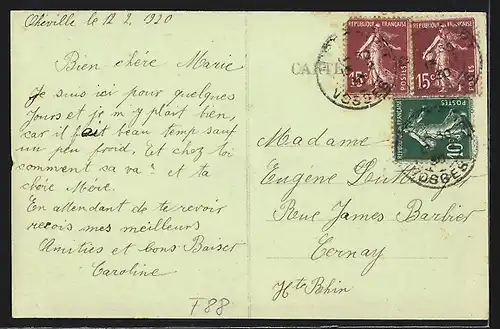 Théville le 12 2 1930
Bien chére Marie
Je suis ici pour quelques
Jours et je m'y plait bien,
car il fait beau temp sauf
un peu froid. Et chez toi
comment sa va? et ta
chére Mére.
En attendant de te revoir
recois mes meilleurs
Amitiés et bons Baiser
Caroline
F88
CARTE
Madame
Eugéne
Rue James Barbier
Cernay
Hte Rhin
REPUBLIQUE FRANÇAISE
15c
POSTES
REPUBLIQUE FRANÇAISE
15c
POSTES
REPUBLIQUE FRANÇAISE
10c
POSTES
VOSGES
VOSGES